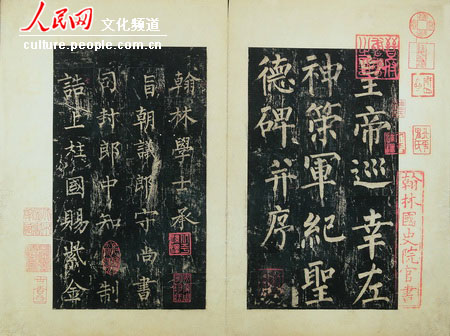 人民网 文化频道
culture.people.com.cn
皇帝巡幸左
神策軍紀聖
德碑并序
翰林國史院官書
翰林學士承
旨朝議郎守尚書
司封郎中知制
誥上柱國賜紫金